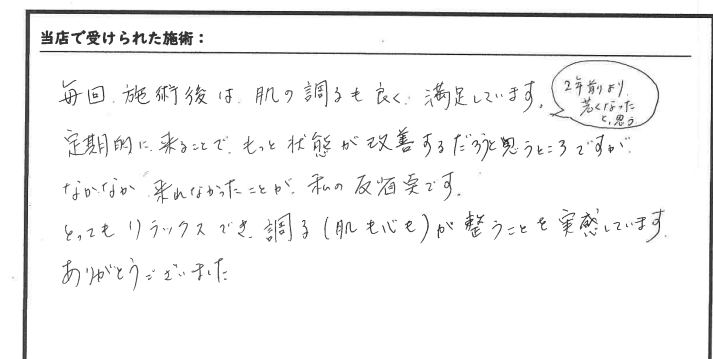 当店で受けられた施術：
毎回、施術後は、肌の調子も良く、満足しています。
2年前より
若くなった
と思う
定期的に来ることで、もっと状態が改善するだろうと思うところですが、
なかなか来れなかったことが、私の反省点です。
とってもリラックスでき、調子(肌も心も)が整うことを実感しています。
ありがとうございました